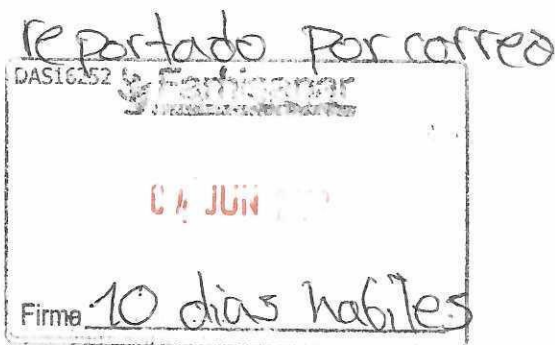 reportado por correo
DAS16252
Famisanar
04 JUN
Firma 10 dias habiles